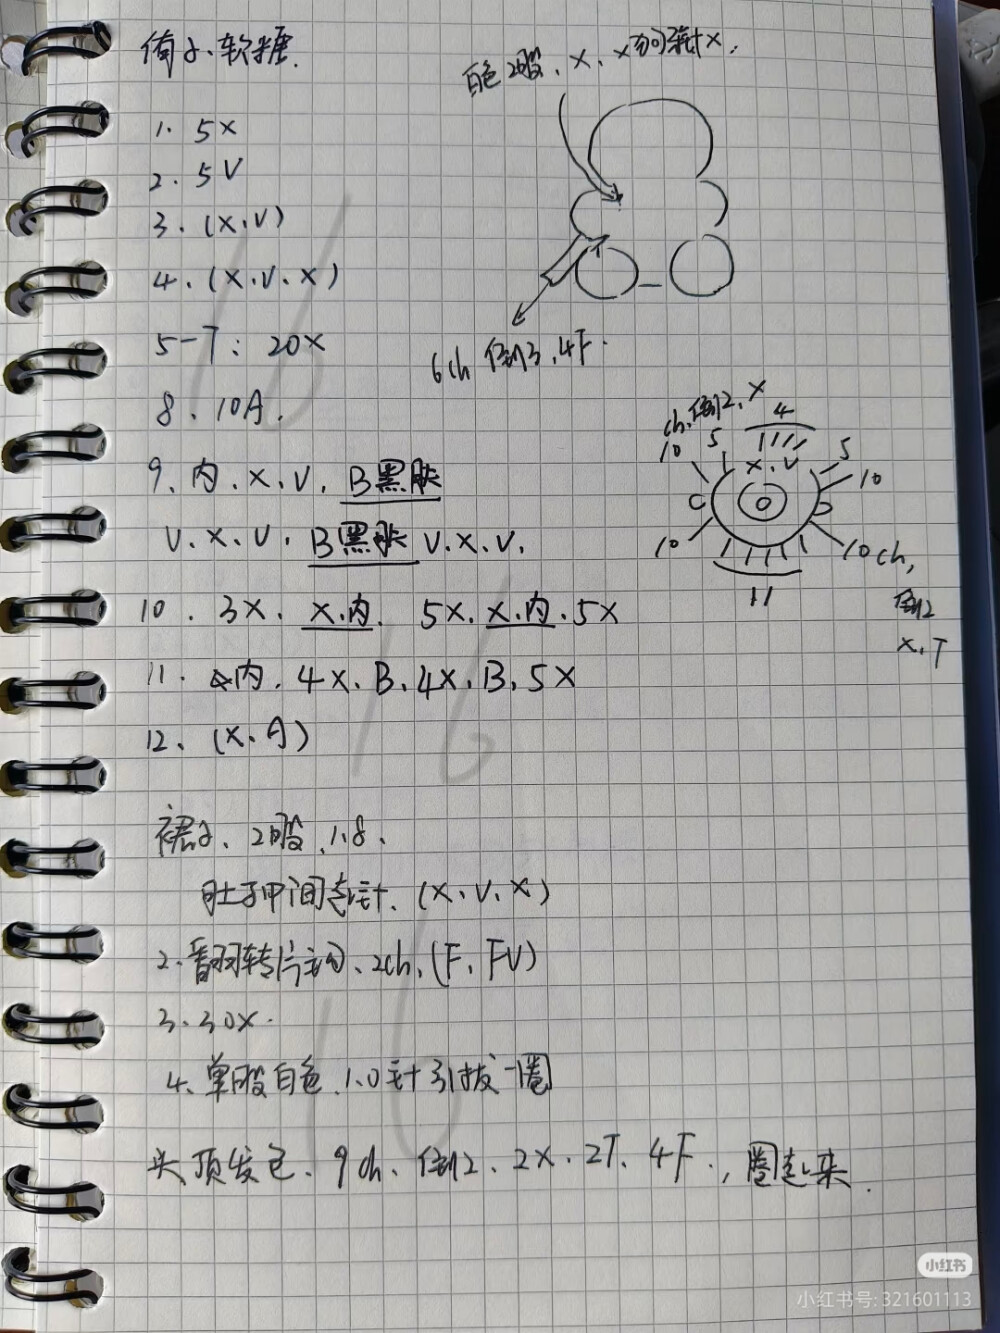 软糖.
白色2股、X、X
1. 5X
2. 5V
3. (X.V)
4. (X.V.X)
5-7: 20X
6ch 倒3.4F.
8. 10A.
ch.倒2.X
4
10
5
5
X.V
10
C
10
10ch,
11
倒2
X.T
9、内.X.V.B黑肤
V.X.V.B黑肤 V.X.V.
10. 3X. X.内. 5X.X.内.5X
11. 内.4X.B.4X.B.5X
12、(X.A)
裙子、2股.1.8、
肚子中间起针、(X、V、X)
2.翻转片钩、2ch、(F、FV)
3.30X.
4、单股白色.1.0针引拔一圈
头顶发包、9ch、倒2、2X.2T、4F.,圈起来.
小红书
小红书号: 321601113